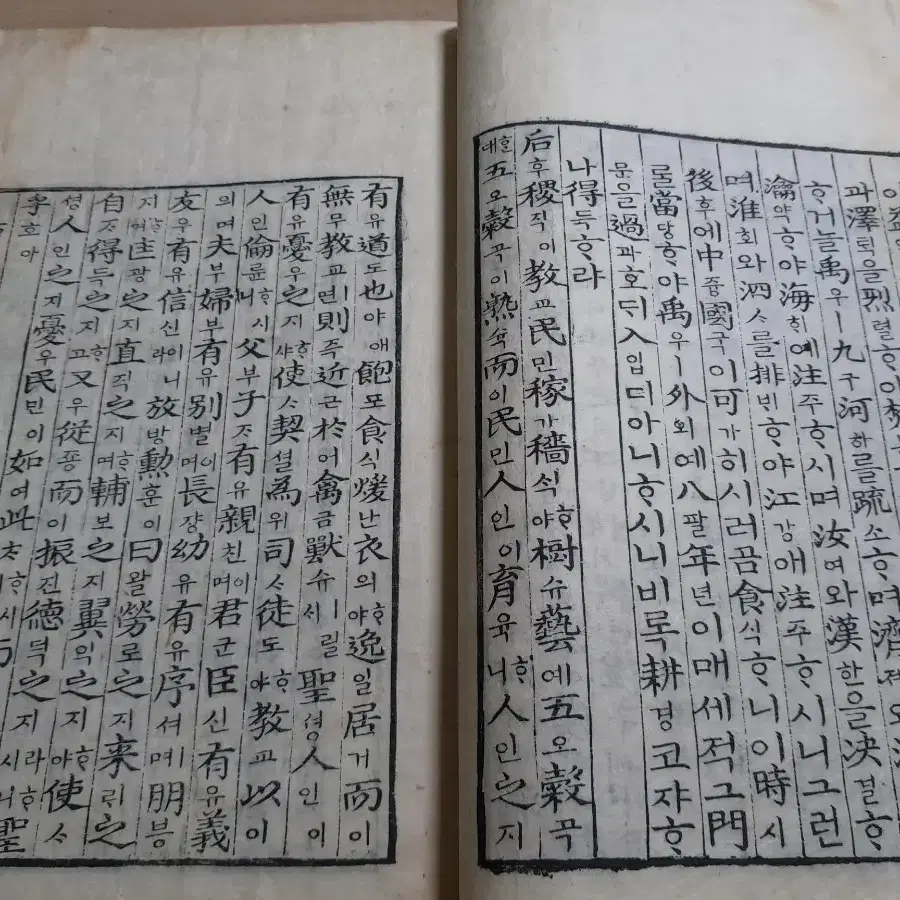 과澤ᄐᆡᆨ을烈렬ᄒᆞ야焚
ᄒᆞ거늘禹우ㅣ九구河하를疏소ᄒᆞ며濟졔와
瀹약ᄒᆞ야海ᄒᆡ예注주ᄒᆞ시며汝여와漢한을决결ᄒᆞ
며淮회와泗ᄉᆞ를排ᄇᆡᄒᆞ야江강애注주ᄒᆞ시니그런
後후에中듕國국이可가히시러곰食식ᄒᆞ니이時시
롤當당ᄒᆞ야禹우ㅣ外외예八팔年년이매세적그門
문을過과호ᄃᆡ入입디아니ᄒᆞ시니비록耕경코쟈ᄒᆞ
나得득ᄒᆞ랴
后후稷직이教교民민稼가穡식ᄒᆞ야樹슈藝예五오穀곡
ᄒᆞᆫ대五오穀곡이熟슉而이民민人인이育육ᄒᆞ니人인之지
有유道도也야애飽포食식煖난衣의ᄒᆞ야逸일居거而이
無무教교ㅣ면則즉近근於어禽금獸슈ㅣ릴ᄉᆡ聖셩人인이
有유憂우之지ᄒᆞ샤使ᄉᆞ契셜為위司ᄉᆞ徒도ᄒᆞ야教교以이
人인倫륜ᄒᆞ시니父부子ᄌᆞ有유親친이며君군臣신有유義
의며夫부婦부有유別별이며長쟝幼유有유序셔ㅣ며朋븡
友우有유信신이니라放방勲훈이曰왈勞로之지来ᄅᆡ之
지ᄒᆞ며匡광之지直직之지ᄒᆞ며輔보之지翼익之지ᄒᆞ야使ᄉᆞ
自ᄌᆞ得득之지ᄒᆞ고又우從죵而이振진德덕之지라ᄒᆞ시니聖
셩人인之지憂우民민이如여此ᄎᆞᄒᆞ시
乎호아